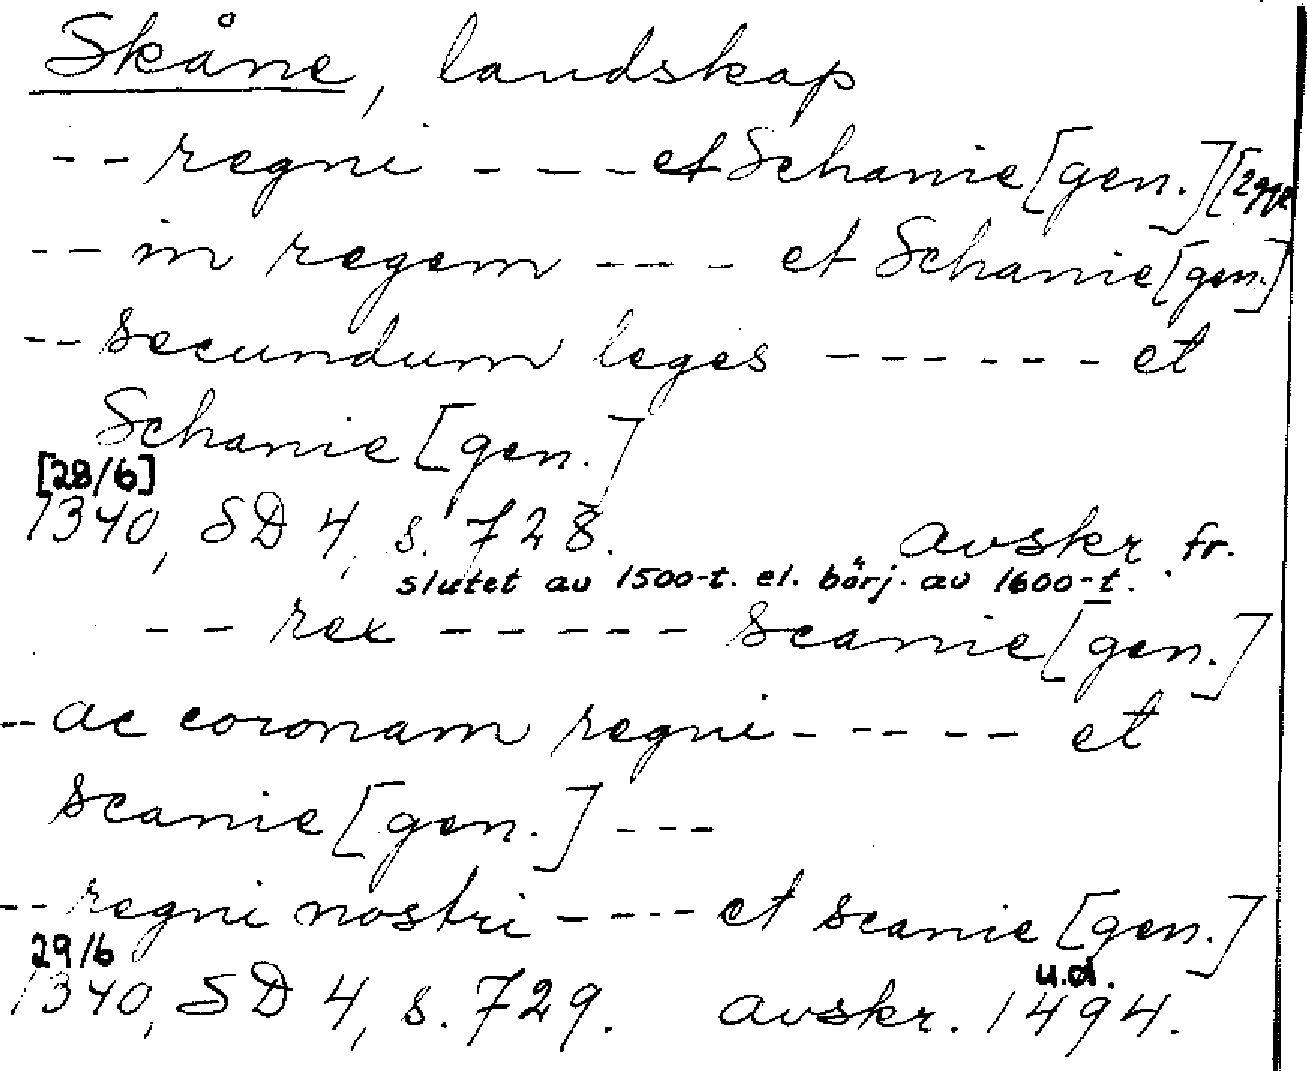 Skåne, landskap
-- regni --- et Schanie [gen.] [2ggr
-- in regem --- et Schanie [gen.]
-- secundum leges ------ et
Schanie [gen.]
[28/6]
1340, SD 4, s. 728. avskr fr.
slutet av 1500-t. el. börj. av 1600-t.
-- rex ----- scanie [gen.]
-- ac coronam regni ----- et
scanie [gen.] ---
-- regni nostri ---- et scanie [gen.]
29/6 u.d.
1340, SD 4, s. 729. avskr. 1494.